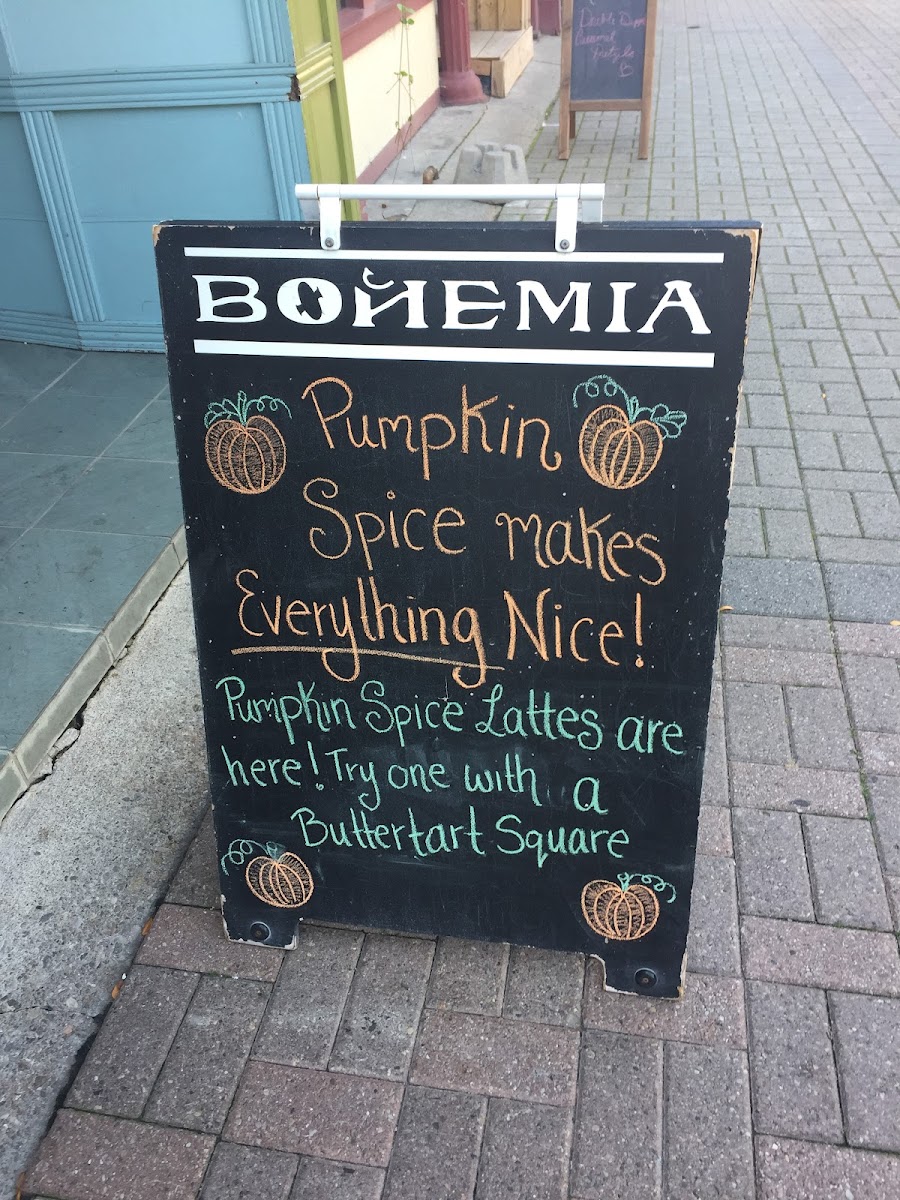 Double Dipped
Caramel
Pretzels
BOHEMIA
Pumpkin
Spice makes
Everything Nice!
Pumpkin Spice Lattes are
here! Try one with a
Buttertart Square